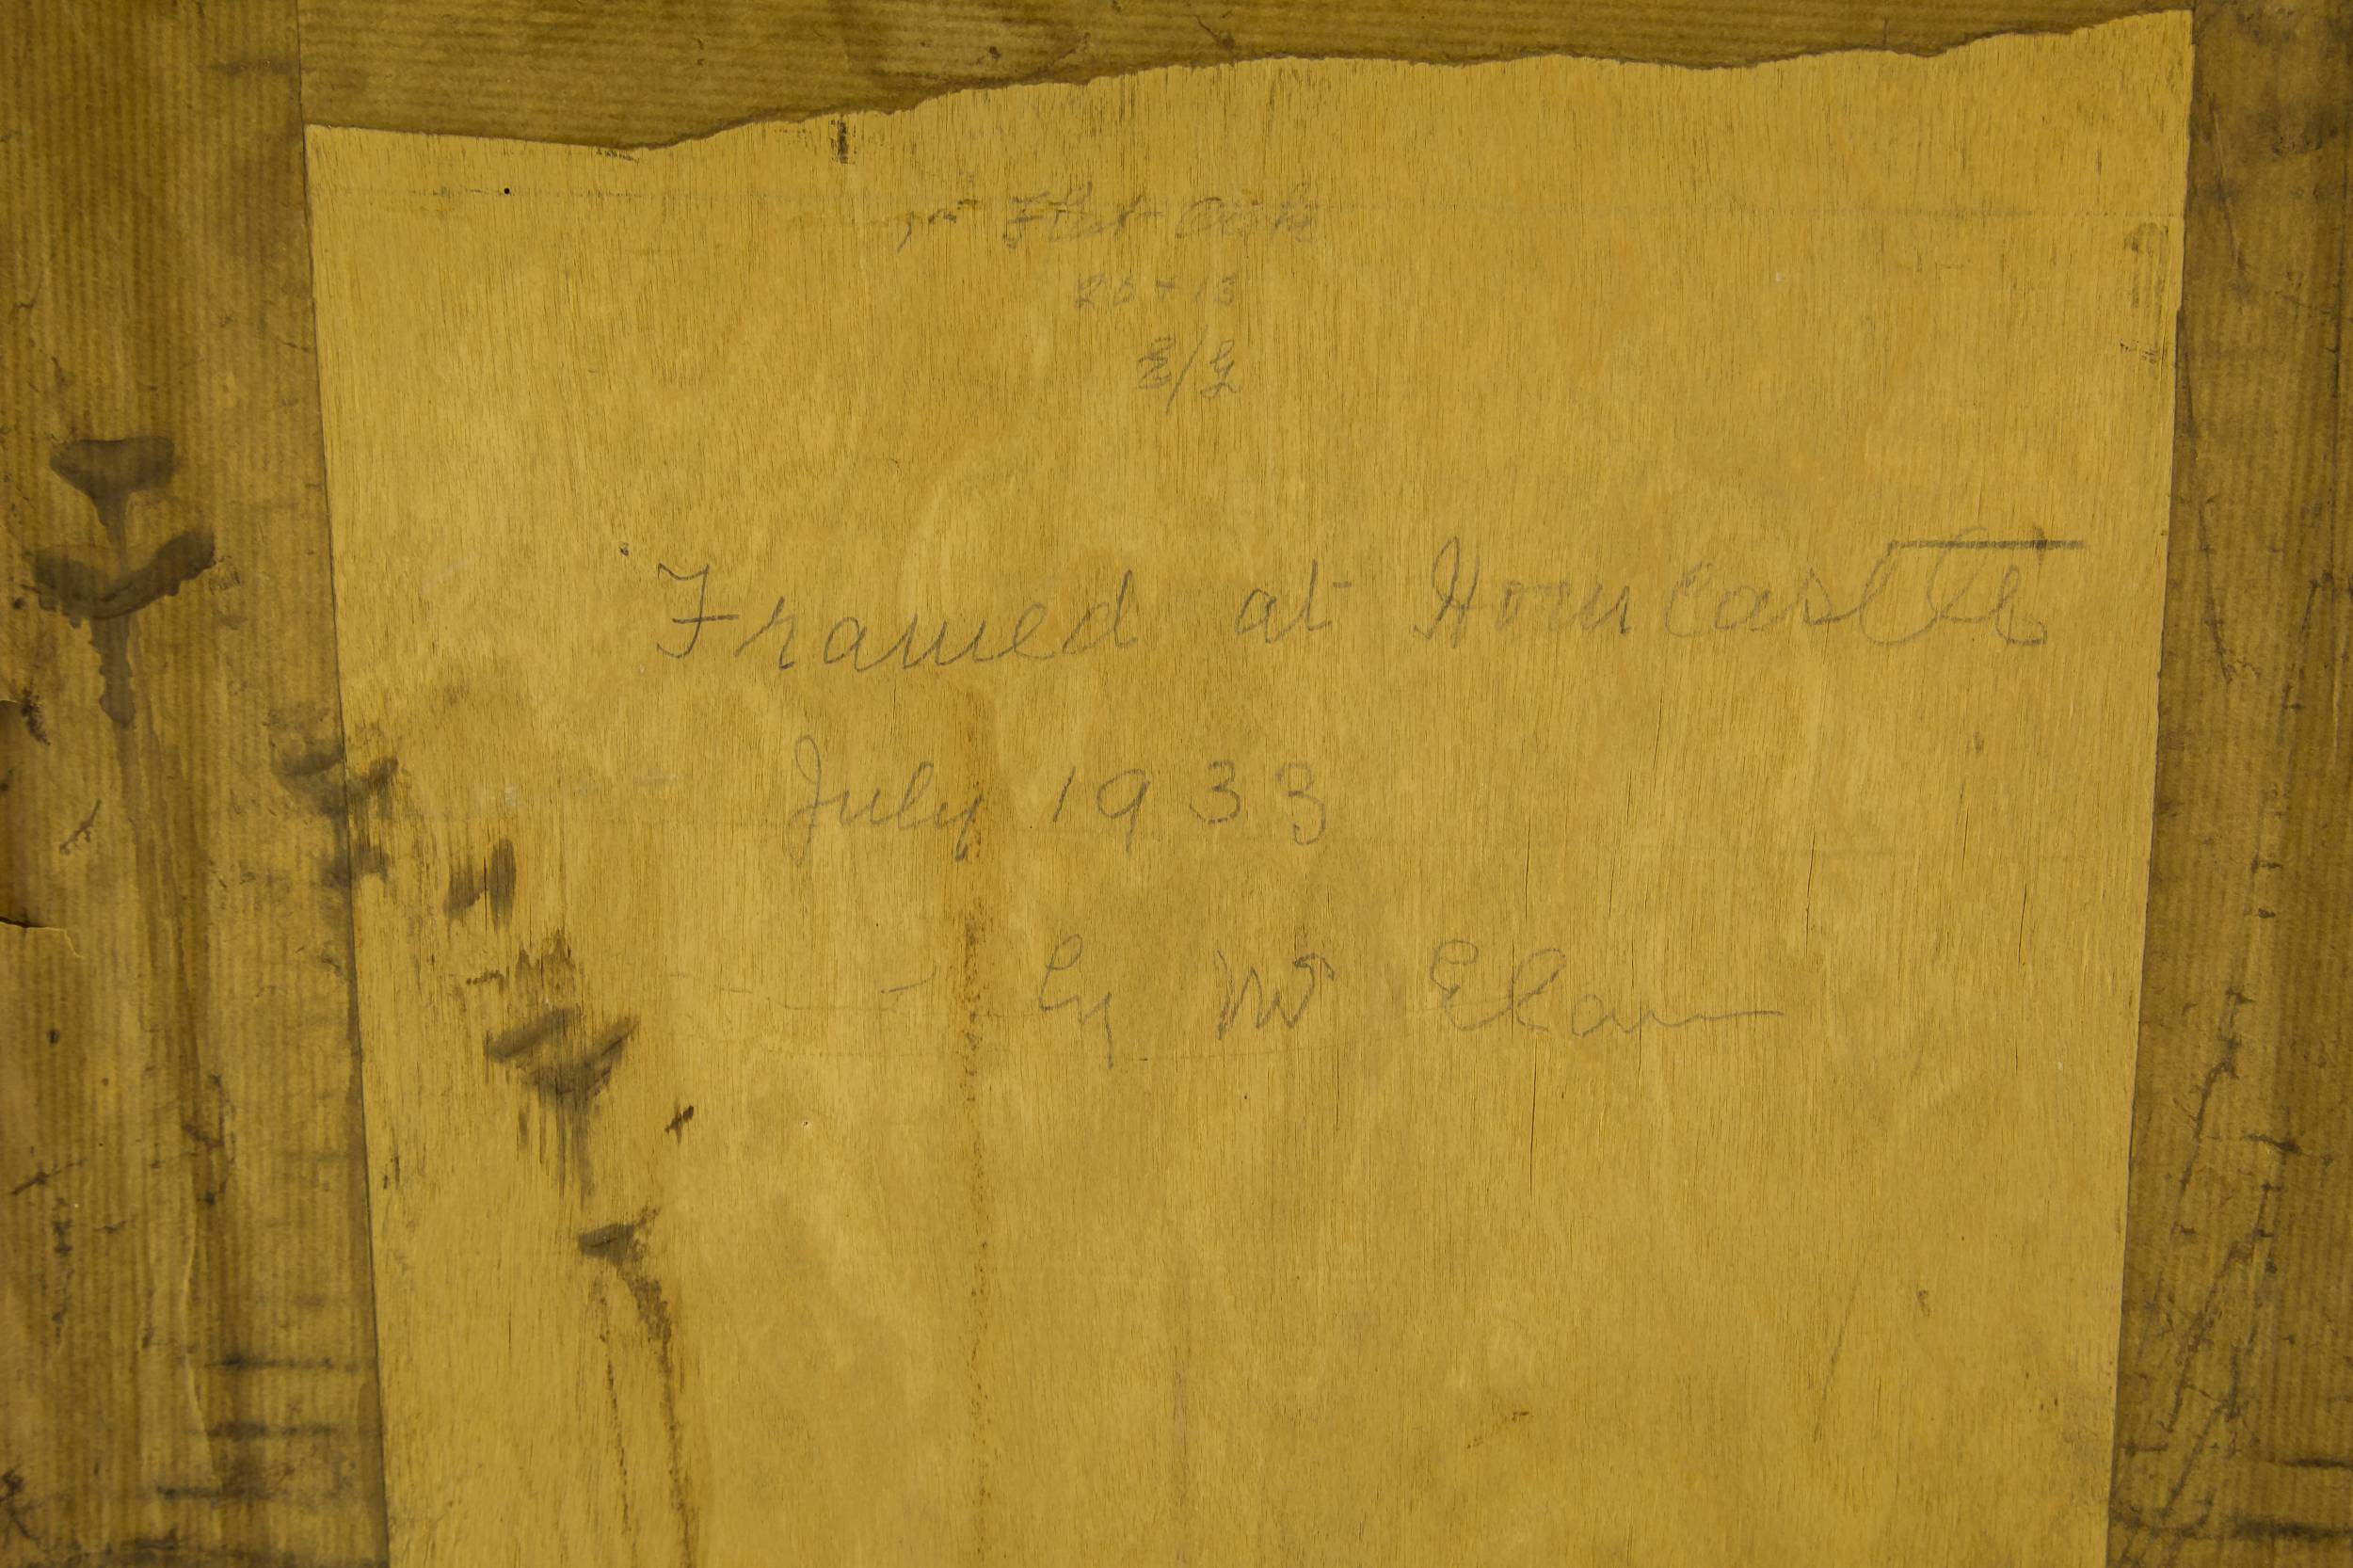 Flat Oak
20 + 13
Framed at Horncastle
July 1933
by Mr Elam